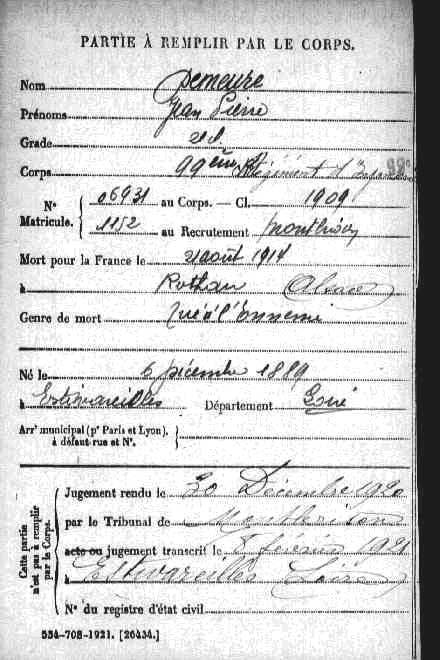 PARTIE À REMPLIR PAR LE CORPS.
Nom Demeure
Prénoms Jean Pierre
Grade 2e cl.
Corps 99ème Régiment d'Infanterie
N° Matricule. 06931 au Corps. — Cl. 1909
1152 au Recrutement Montbrison
Mort pour la France le 21 août 1914
à Rothau (Alsace)
Genre de mort Tué à l'Ennemi
Né le 6 Décembre 1889
à Estivareilles Département Loire
Arr' municipal (p' Paris et Lyon),
à défaut rue et N°.
Cette partie
n'est pas à remplir
par le Corps.
Jugement rendu le 30 Décembre 1920
par le Tribunal de Montbrison
acte ou jugement transcrit le 8 février 1921
à Estivareilles (Loire)
N° du registre d'état civil
534-708-1921. [26434.]